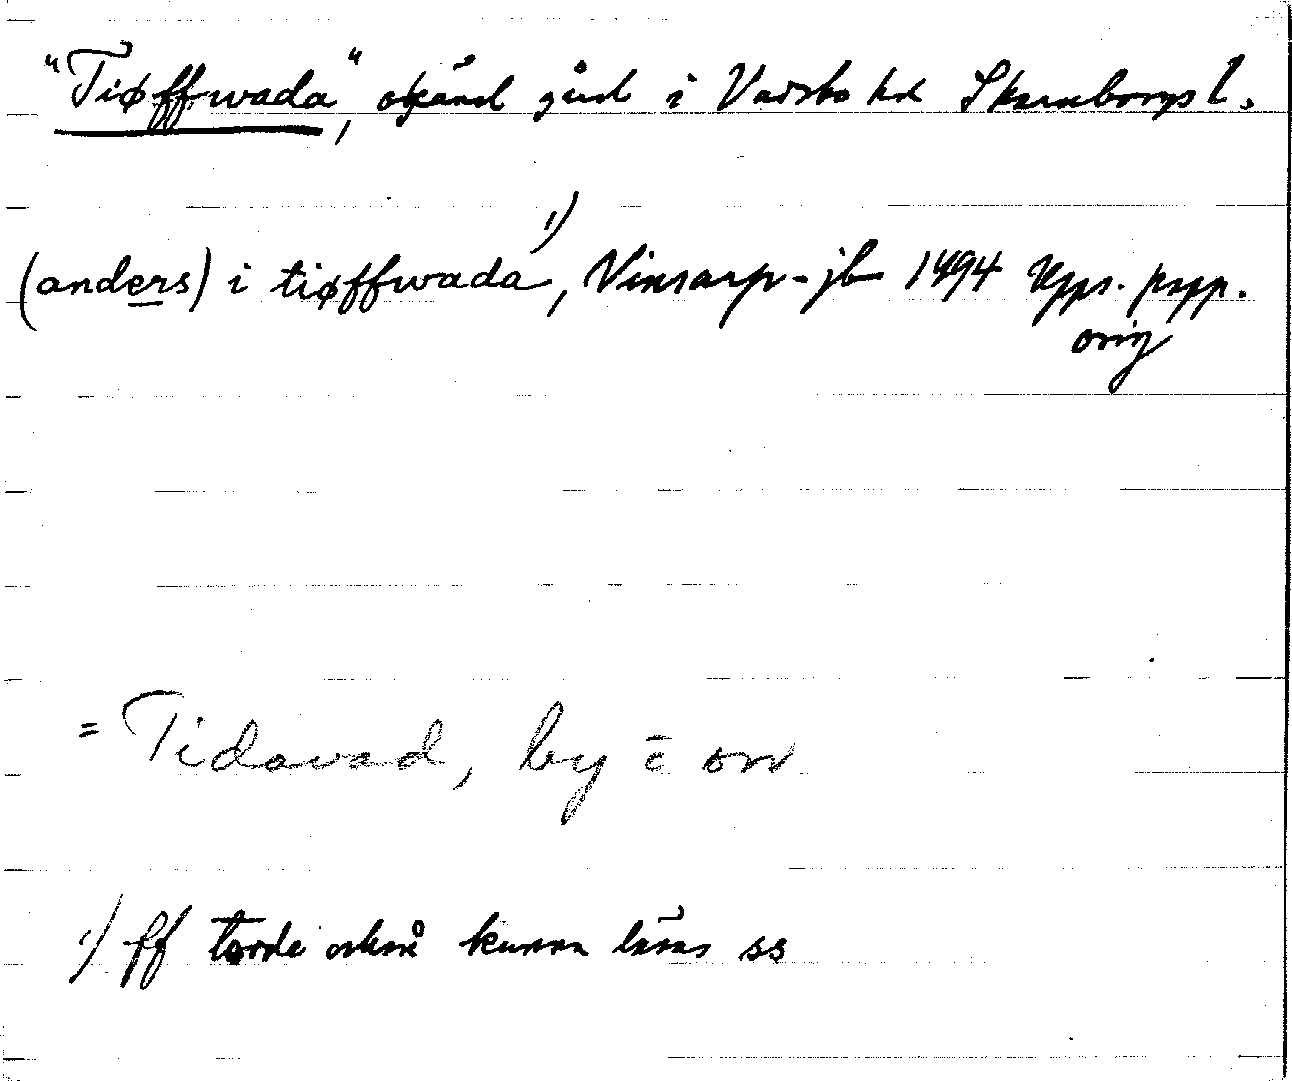 "Tiøffwada", okänd gård i Vadsbo hd Skaraborgs l.
(anders) i tiøffwada 1), Vinsarp-jb 1494 Upps. papp.
orig
= Tidavad, by = on
1) ff torde också kunna läsas ss